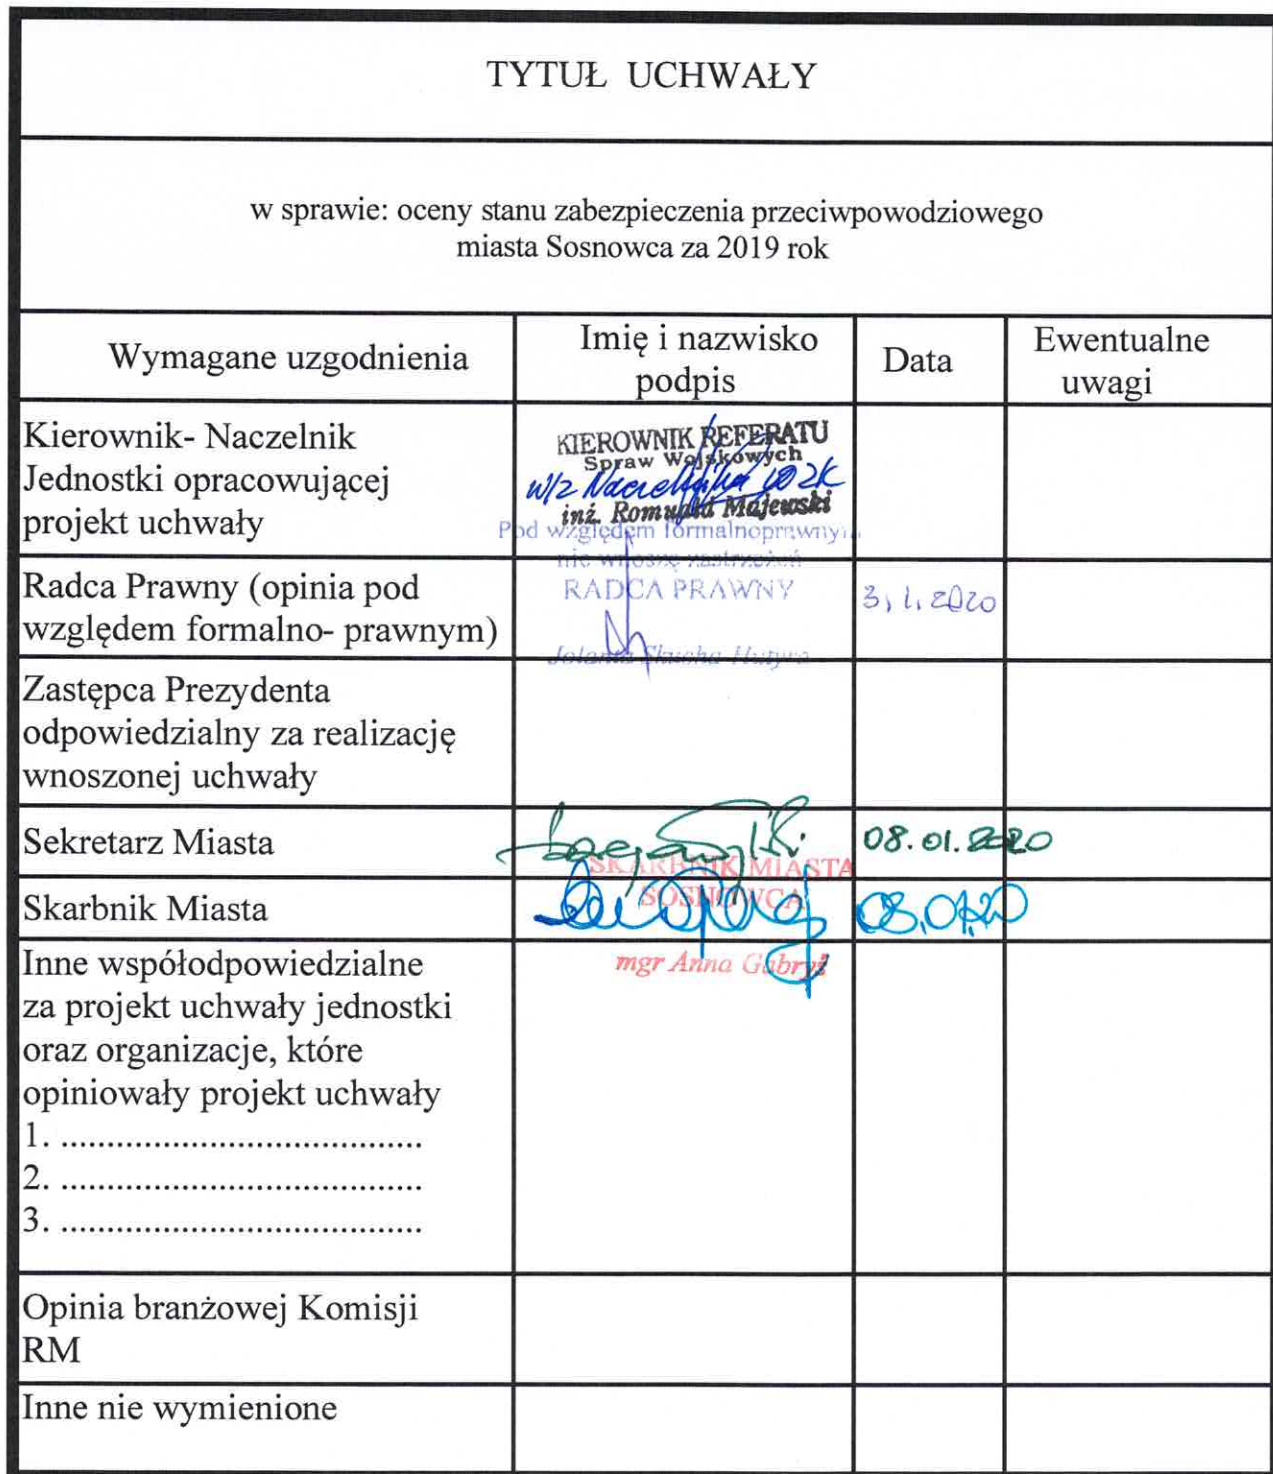 TYTUŁ UCHWAŁY
w sprawie: oceny stanu zabezpieczenia przeciwpowodziowego
miasta Sosnowca za 2019 rok
Wymagane uzgodnienia
Imię i nazwisko
podpis
Data
Ewentualne
uwagi
Kierownik- Naczelnik
Jednostki opracowującej
projekt uchwały
KIEROWNIK REFERATU
Spraw Wojskowych
w/z Naczelnika WZK
inż. Romuald Majewski
Pod względem formalnoprawnym
nie wnoszę zastrzeżeń
Radca Prawny (opinia pod
względem formalno- prawnym)
RADCA PRAWNY
Jolanta Skucha Hutyra
3, 1, 2020
Zastępca Prezydenta
odpowiedzialny za realizację
wnoszonej uchwały
Sekretarz Miasta
08.01.2020
Skarbnik Miasta
SKARBNIK MIASTA
SOSNOWCA
mgr Anna Gabryś
08,01,20
Inne współodpowiedzialne
za projekt uchwały jednostki
oraz organizacje, które
opiniowały projekt uchwały
1. .......................................
2. .......................................
3. .......................................
Opinia branżowej Komisji
RM
Inne nie wymienione